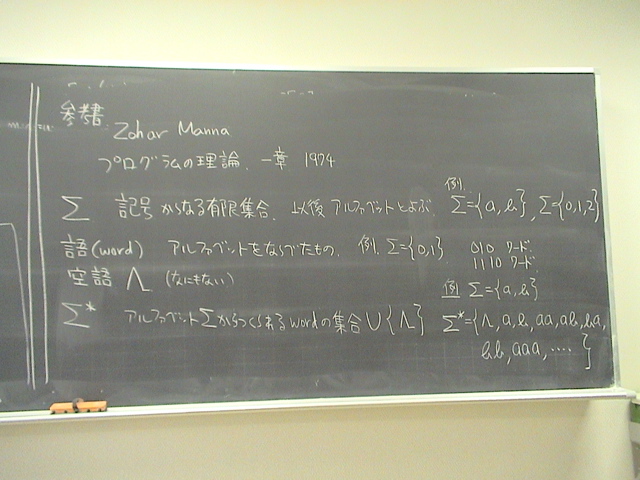 参考書
Zohar Manna
プログラムの理論. 一章 1974
例.
Σ 記号からなる有限集合. 以後 アルファベットとよぶ. Σ={a,b}, Σ={0,1,2}
語(word) アルファベットをならべたもの. 例. Σ={0,1} 010 ワード.
1110 ワード.
空語 Λ (なにもない)
例 Σ={a,b}
Σ* アルファベットΣからつくられるwordの集合∪{Λ} Σ*={Λ,a,b,aa,ab,ba,
bb,aaa,.... }